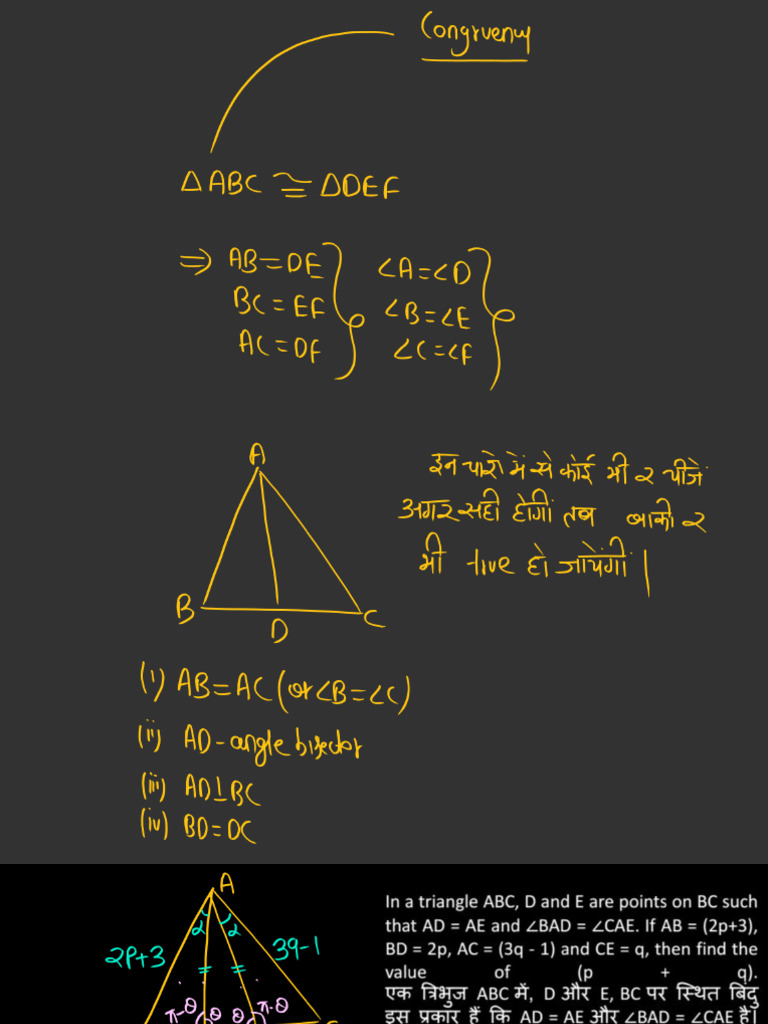 Congruency
△ABC ≅ △DEF
⇒ AB=DE ∠A=∠D
BC=EF ∠B=∠E
AC=DF ∠C=∠F
A
B
D
C
इन चारो में से कोई भी 2 चीजें
अगर सही होगीं तब बाकी 2
भी true हो जायेंगी |
(i) AB=AC (or ∠B=∠C)
(ii) AD-angle bisector
(iii) AD⊥BC
(iv) BD=DC
A
α α
2P+3
3q-1
π-θ θ θ π-θ
In a triangle ABC, D and E are points on BC such
that AD = AE and ∠BAD = ∠CAE. If AB = (2p+3),
BD = 2p, AC = (3q - 1) and CE = q, then find the
value of (p + q).
एक त्रिभुज ABC में, D और E, BC पर स्थित बिंदु
इस प्रकार हैं कि AD = AE और ∠BAD = ∠CAE है।